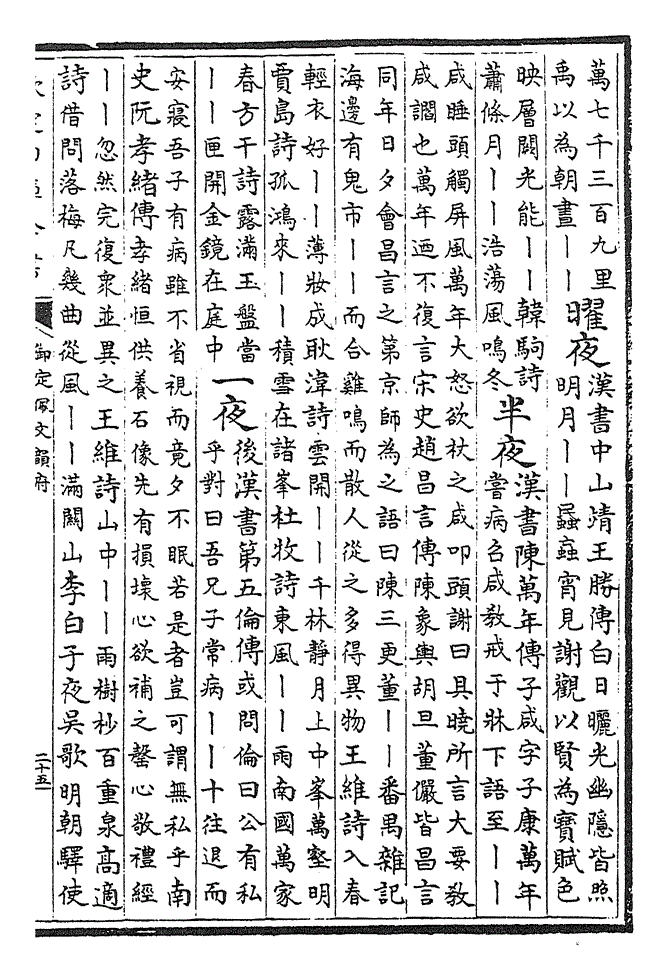 萬七千三百九里
禹以為朝晝｜｜
曜夜
漢書中山靖王勝傳白日曬光幽隱皆照
明月｜｜蟁蝱宵見謝觀以賢為寶賦色
映層闕光能｜｜韓駒詩
蕭條月｜｜浩蕩風鳴冬
半夜
漢書陳萬年傳子咸字子康萬年
嘗病召咸敎戒于牀下語至｜｜
咸睡頭觸屏風萬年大怒欲杖之咸叩頭謝曰具曉所言大要敎
咸讇也萬年迺不復言宋史趙昌言傳陳象輿胡旦董儼皆昌言
同年日夕會昌言之第京師為之語曰陳三更董｜｜番禺雜記
海邊有鬼市｜｜而合雞鳴而散人從之多得異物王維詩入春
輕衣好｜｜薄妝成耿湋詩雲開｜｜千林靜月上中峯萬壑明
賈島詩孤鴻來｜｜積雪在諸峯杜牧詩東風｜｜雨南國萬家
春方干詩露滿玉盤當
｜｜匣開金鏡在庭中
一夜
後漢書第五倫傳或問倫曰公有私
乎對曰吾兄子常病｜｜十往退而
安寢吾子有病雖不省視而竟夕不眠若是者豈可謂無私乎南
史阮孝緒傳孝緒恒供養石像先有損壞心欲補之罄心敬禮經
｜｜忽然完復衆並異之王維詩山中｜｜雨樹杪百重泉高適
詩借問落梅凡幾曲從風｜｜滿關山李白子夜吳歌明朝驛使
御定佩文韻府
二十五